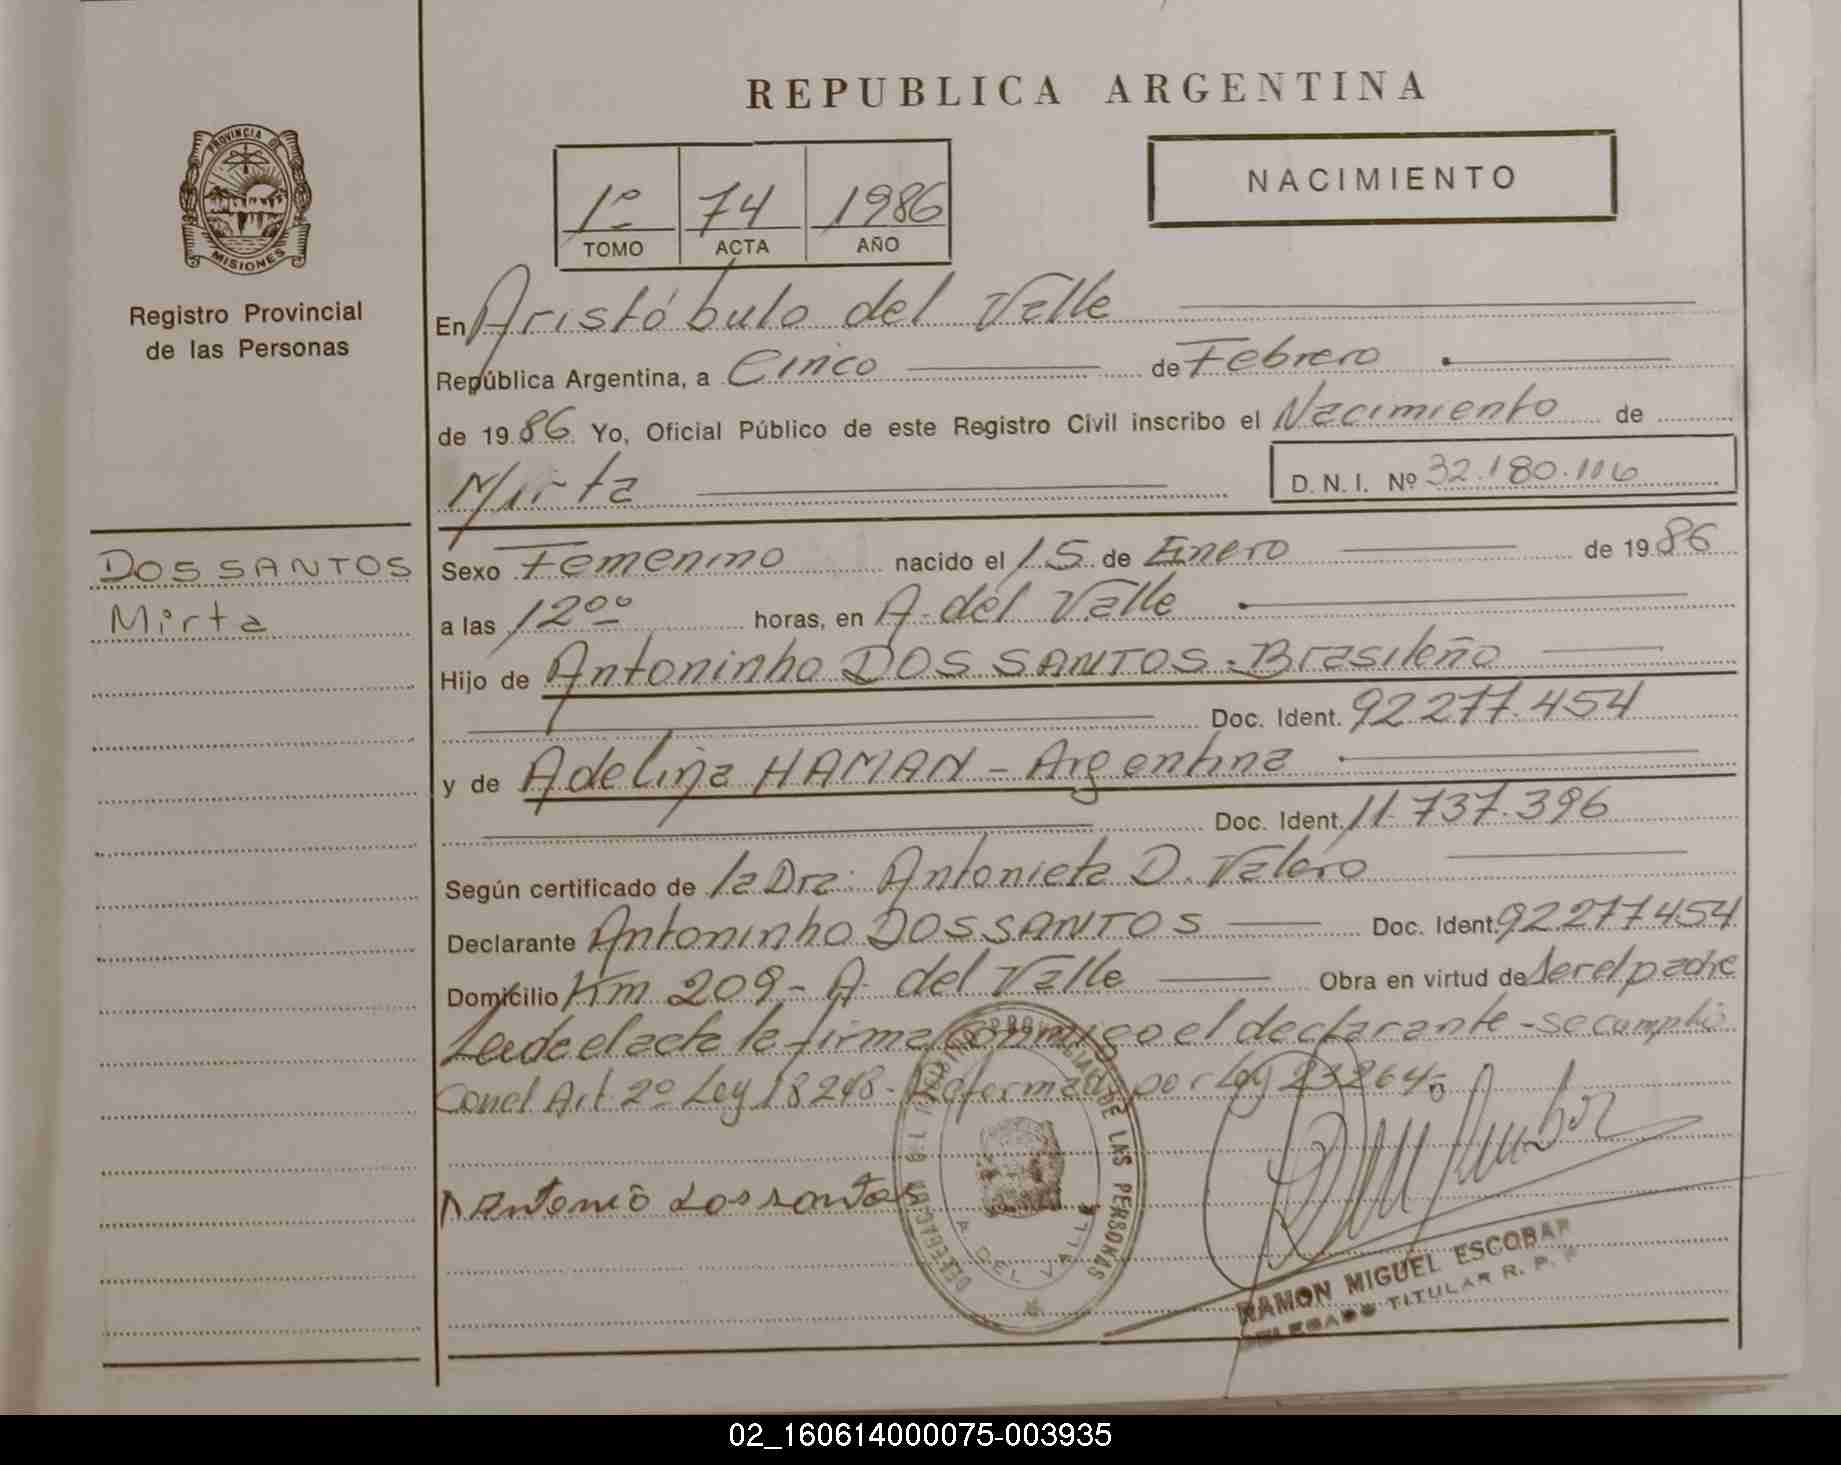 REPUBLICA ARGENTINA
PROVINCIA DE
MISIONES
Registro Provincial
de las Personas
1º 74 1986
TOMO ACTA AÑO
NACIMIENTO
En Aristóbulo del Valle
República Argentina, a Cinco de Febrero
de 1986 Yo, Oficial Público de este Registro Civil inscribo el Nacimiento de
Mirta
D. N. I. Nº 32.180.116
DOS SANTOS
Mirta
Sexo Femenino nacido el 15 de Enero de 1986
a las 12ºº horas, en A. del Valle
Hijo de Antoninho DOS SANTOS - Brasileño
Doc. Ident. 92.277.454
y de Adelina HAMAN - Argentina
Doc. Ident. 11.737.396
Según certificado de la Dra. Antonieta D. Valero
Declarante Antoninho DOS SANTOS Doc. Ident. 92277454
Domicilio Km 209 - A. del Valle Obra en virtud de ser el padre
Leida el acta la firma conmigo el declarante - se cumplió
con el Art. 2º Ley 18248 - Reformada por Ley 23264.
Antonio dos santos
DELEGACION DEL REGISTRO PROVINCIAL DE LAS PERSONAS
A. DEL VALLE
RAMON MIGUEL ESCOBAR
DELEGADO TITULAR R. P.
02_160614000075-003935